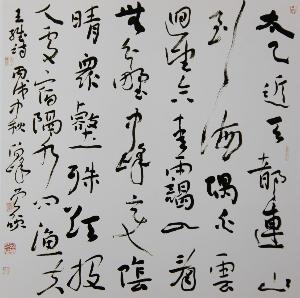 太乙近天都連山
到海隅白雲
迴望合青靄入看
無分野中峰變陰
晴眾壑殊欲投
人處宿隔水問漁夫
王維詩丙中秋